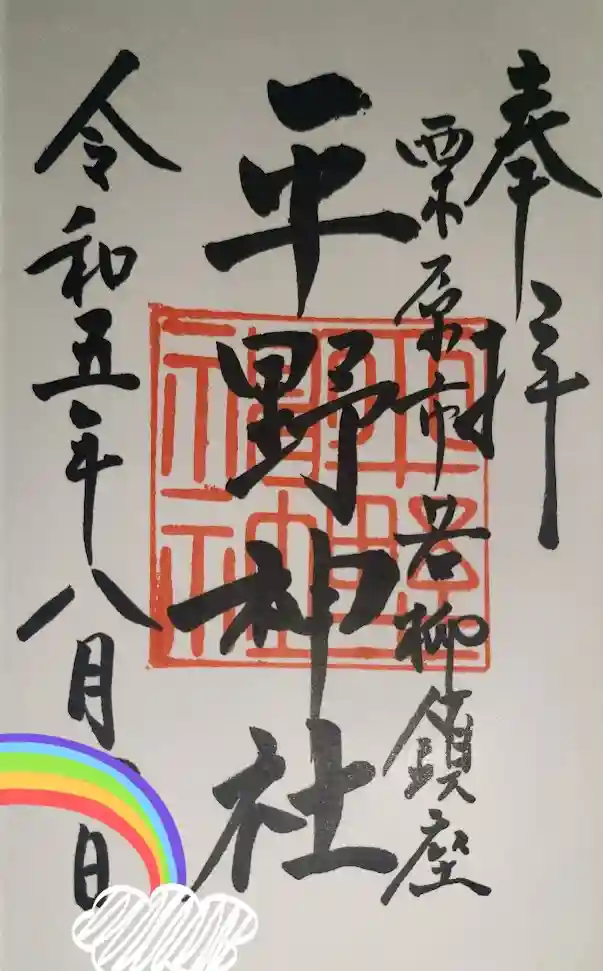 奉拝
栗原市若柳鎮座
平野神社
令和五年八月 日